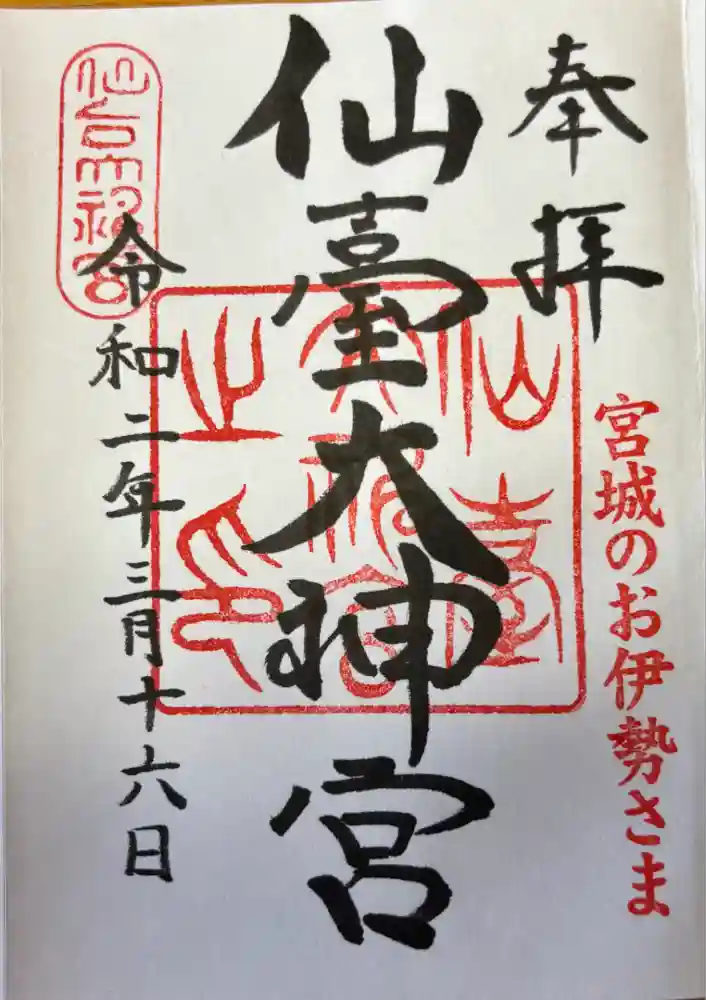 奉拝
宮城のお伊勢さま
仙臺大神宮
仙臺大神宮之印
令和二年三月十六日
仙台大神宮